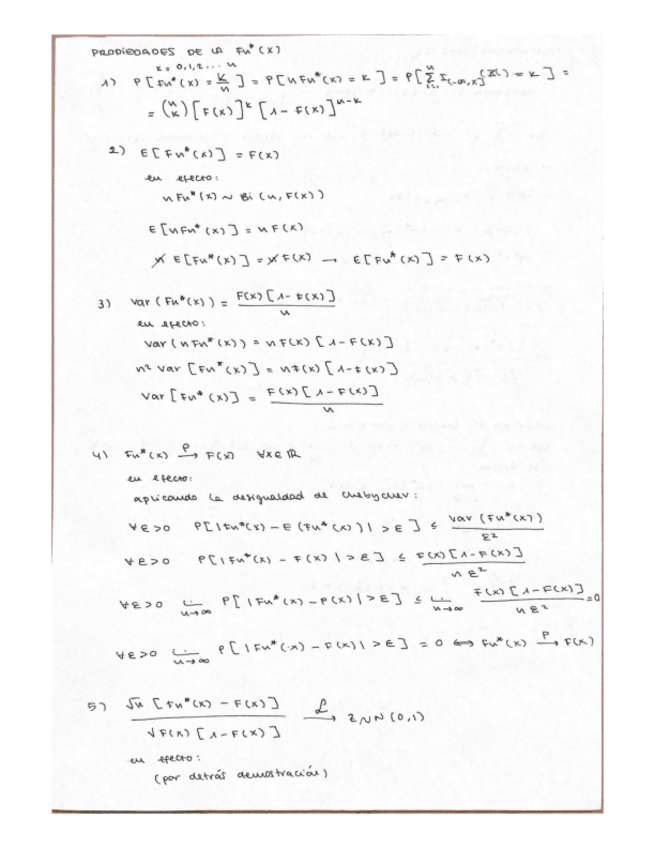 PROPIEDADES DE LA Fn*(x)
k = 0,1,2... n
1) P[Fn*(x) = k/n] = P[nFn*(x) = k] = P[∑ᵢ₌₁ⁿ I(-∞,x](Xi) = k] =
= (n k) [F(x)]^k [1 - F(x)]^(n-k)
2) E[Fn*(x)] = F(x)
en efecto:
nFn*(x) ~ Bi(n, F(x))
E[nFn*(x)] = nF(x)
n E[Fn*(x)] = n F(x) → E[Fn*(x)] = F(x)
3) Var(Fn*(x)) = F(x)[1 - F(x)] / n
en efecto:
Var(nFn*(x)) = nF(x)[1 - F(x)]
n² Var[Fn*(x)] = nF(x)[1 - F(x)]
Var[Fn*(x)] = F(x)[1 - F(x)] / n
4) Fn*(x) →^P F(x) ∀x∈ℝ
en efecto:
aplicando la desigualdad de Chebychev:
∀ε>0 P[|Fn*(x) - E(Fn*(x))| > ε] ≤ Var(Fn*(x)) / ε²
∀ε>0 P[|Fn*(x) - F(x)| > ε] ≤ F(x)[1 - F(x)] / nε²
∀ε>0 lim n→∞ P[|Fn*(x) - F(x)| > ε] ≤ lim n→∞ F(x)[1 - F(x)] / nε² = 0
∀ε>0 lim n→∞ P[|Fn*(x) - F(x)| > ε] = 0 ⟺ Fn*(x) →^P F(x)
5) √n [Fn*(x) - F(x)] / √F(x)[1 - F(x)] →^L Z~N(0,1)
en efecto:
(por detrás demostración)